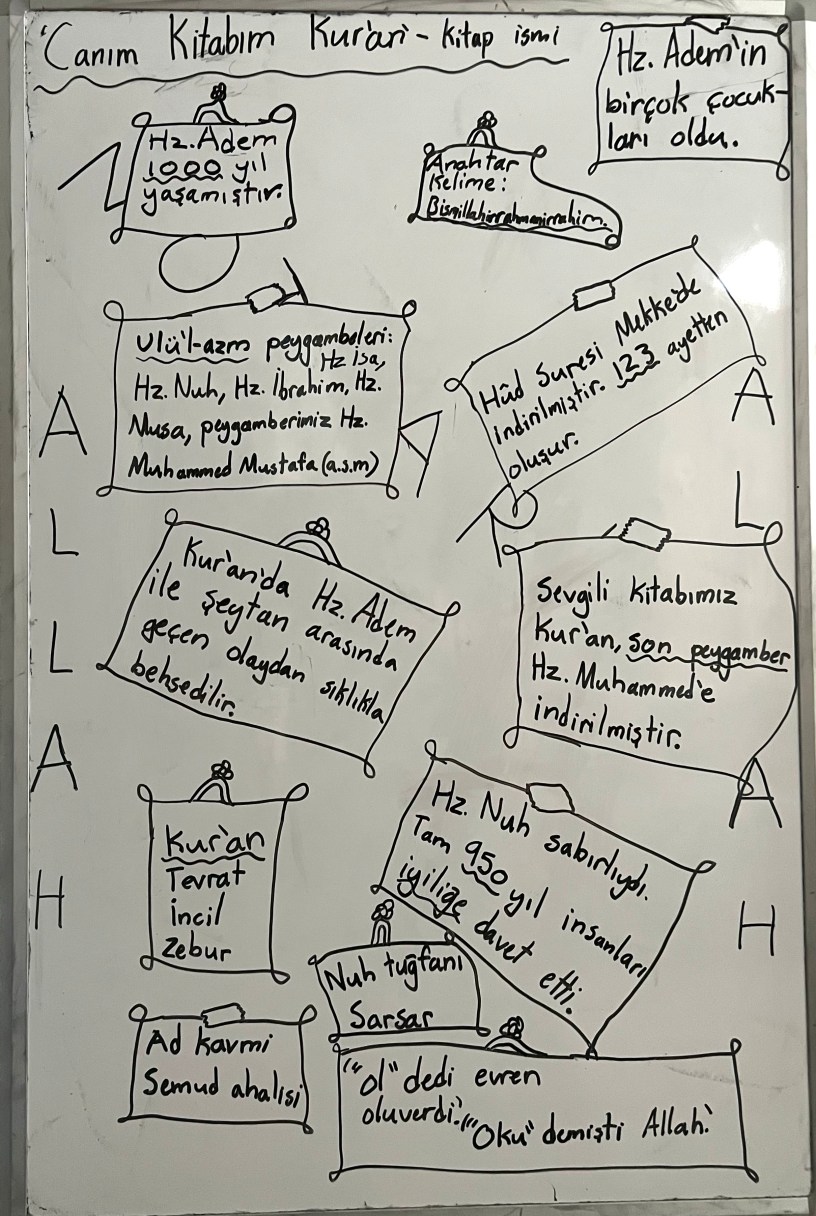 'Canım Kitabım Kur'an' - kitap ismi
Hz. Adem'in
birçok çocuk-
ları oldu.
Hz. Adem
1000 yıl
yaşamıştır.
Anahtar
Kelime:
Bismillahirrahmanirrahim.
Ulü'l-azm peygamberleri:
Hz İsa,
Hz. Nuh, Hz. İbrahim, Hz.
Musa, peygamberimiz Hz.
Muhammed Mustafa (a.s.m)
Hûd Suresi Mekke'de
indirilmiştir. 123 ayetten
oluşur.
Kur'an'da Hz. Adem
ile şeytan arasında
geçen olaydan sıklıkla
behsedilir.
Sevgili Kitabımız
Kur'an, son peygamber
Hz. Muhammed'e
indirilmiştir.
A
L
L
A
H
A
L
A
H
Kur'an
Tevrat
İncil
Zebur
Hz. Nuh sabırlıydı.
Tam 950 yıl insanları
iyiliğe davet etti.
Nuh tuğfanı
Sarsar
Ad kavmi
Semud ahalisi
"ol" dedi evren
oluverdi.
"Oku" demişti Allah.